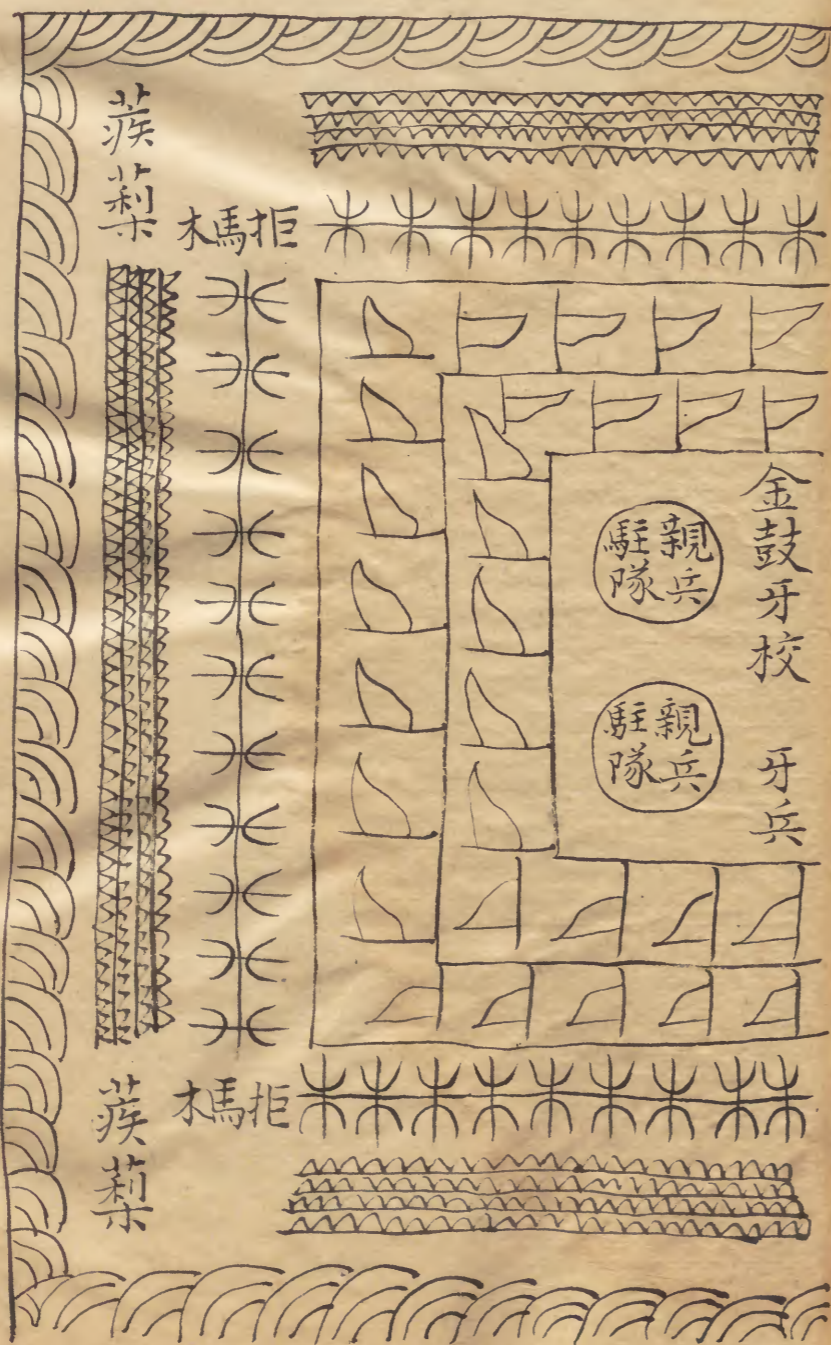 金鼓牙校
牙兵
親兵
駐隊
親兵
駐隊
拒馬木
拒馬木
蒺蔾
蒺蔾